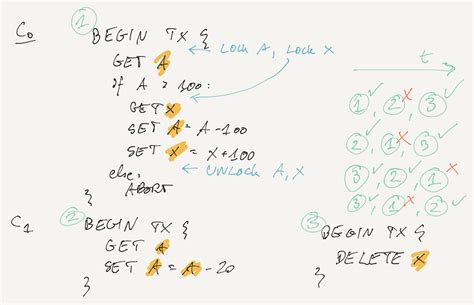 C0 ① BEGIN TX {
GET A ← LOCK A, LOCK X
If A > 100:
GET X
SET A = A - 100
SET X = X + 100
else: ← UNLOCK A, X
ABORT
}
C1 ② BEGIN TX {
GET A
SET A = A - 20
}
t
①✓, ②✗, ③✓
②✓, ①✗, ③✓
②✓, ③✓, ①✗
③✓, ①✗, ②✓
③ BEGIN TX {
DELETE X
}